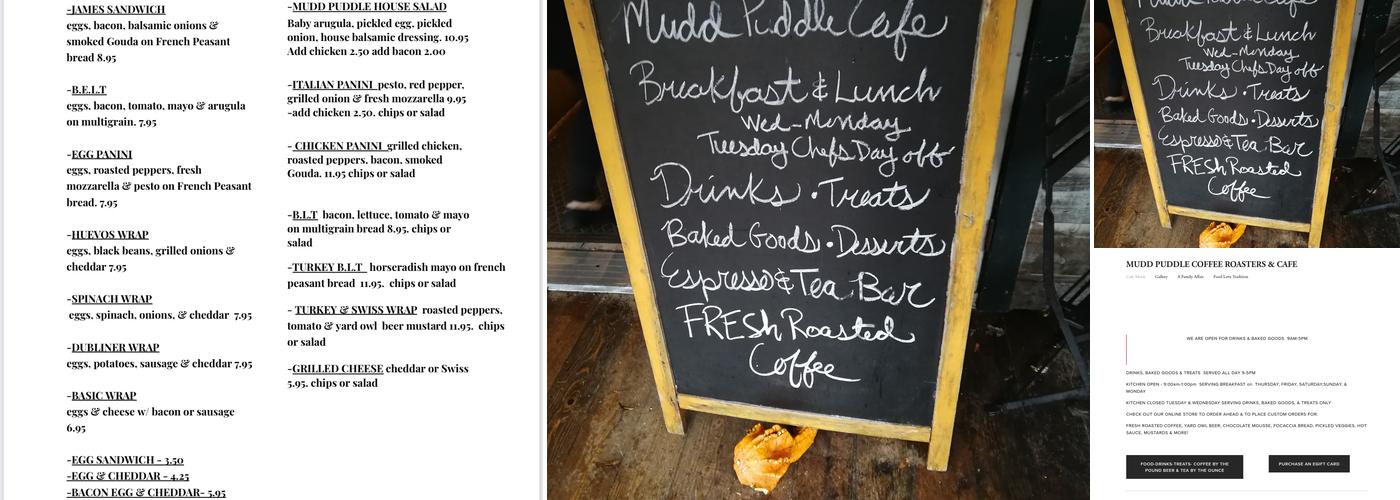 -JAMES SANDWICH
eggs, bacon, balsamic onions &
smoked Gouda on French Peasant
bread 8.95
-B.E.L.T
eggs, bacon, tomato, mayo & arugula
on multigrain. 7.95
-EGG PANINI
eggs, roasted peppers, fresh
mozzarella & pesto on French Peasant
bread. 7.95
-HUEVOS WRAP
eggs, black beans, grilled onions &
cheddar 7.95
-SPINACH WRAP
eggs, spinach, onions, & cheddar 7.95
-DUBLINER WRAP
eggs, potatoes, sausage & cheddar 7.95
-BASIC WRAP
eggs & cheese w/ bacon or sausage
6.95
-EGG SANDWICH - 3.50
-EGG & CHEDDAR - 4.25
-BACON EGG & CHEDDAR- 5.95
-MUDD PUDDLE HOUSE SALAD
Baby arugula, pickled egg, pickled
onion, house balsamic dressing. 10.95
Add chicken 2.50 add bacon 2.00
-ITALIAN PANINI pesto, red pepper,
grilled onion & fresh mozzarella 9.95
-add chicken 2.50. chips or salad
- CHICKEN PANINI grilled chicken,
roasted peppers, bacon, smoked
Gouda. 11.95 chips or salad
-B.L.T bacon, lettuce, tomato & mayo
on multigrain bread 8.95. chips or
salad
-TURKEY B.L.T horseradish mayo on french
peasant bread 11.95. chips or salad
- TURKEY & SWISS WRAP roasted peppers,
tomato & yard owl beer mustard 11.95. chips
or salad
-GRILLED CHEESE cheddar or Swiss
5.95. chips or salad
Mudd Puddle Cafe
Breakfast & Lunch
Wed-Monday
Tuesday Chefs Day off
Drinks • Treats
Baked Goods • Desserts
Espresso & Tea Bar
FREsh Roasted
Coffee
Mudd Puddle Cafe
Breakfast & Lunch
Wed-Monday
Tuesday Chefs Day off
Drinks • Treats
Baked Goods • Desserts
Espresso & Tea Bar
FREsh Roasted
Coffee
MUDD PUDDLE COFFEE ROASTERS & CAFE
Cafe Menu Gallery A Family Affair Food Love Tradition
WE ARE OPEN FOR DRINKS & BAKED GOODS 9AM-5PM
DRINKS, BAKED GOODS & TREATS SERVED ALL DAY 9-5PM
KITCHEN OPEN - 9:00am-1:00pm SERVING BREAKFAST on THURSDAY, FRIDAY, SATURDAY,SUNDAY, &
MONDAY
KITCHEN CLOSED TUESDAY & WEDNESDAY SERVING DRINKS, BAKED GOODS, & TREATS ONLY
CHECK OUT OUR ONLINE STORE TO ORDER AHEAD & TO PLACE CUSTOM ORDERS FOR:
FRESH ROASTED COFFEE, YARD OWL BEER, CHOCOLATE MOUSSE, FOCACCIA BREAD, PICKLED VEGGIES, HOT
SAUCE, MUSTARDS & MORE!
FOOD-DRINKS-TREATS- COFFEE BY THE
POUND BEER & TEA BY THE OUNCE
PURCHASE AN EGIFT CARD